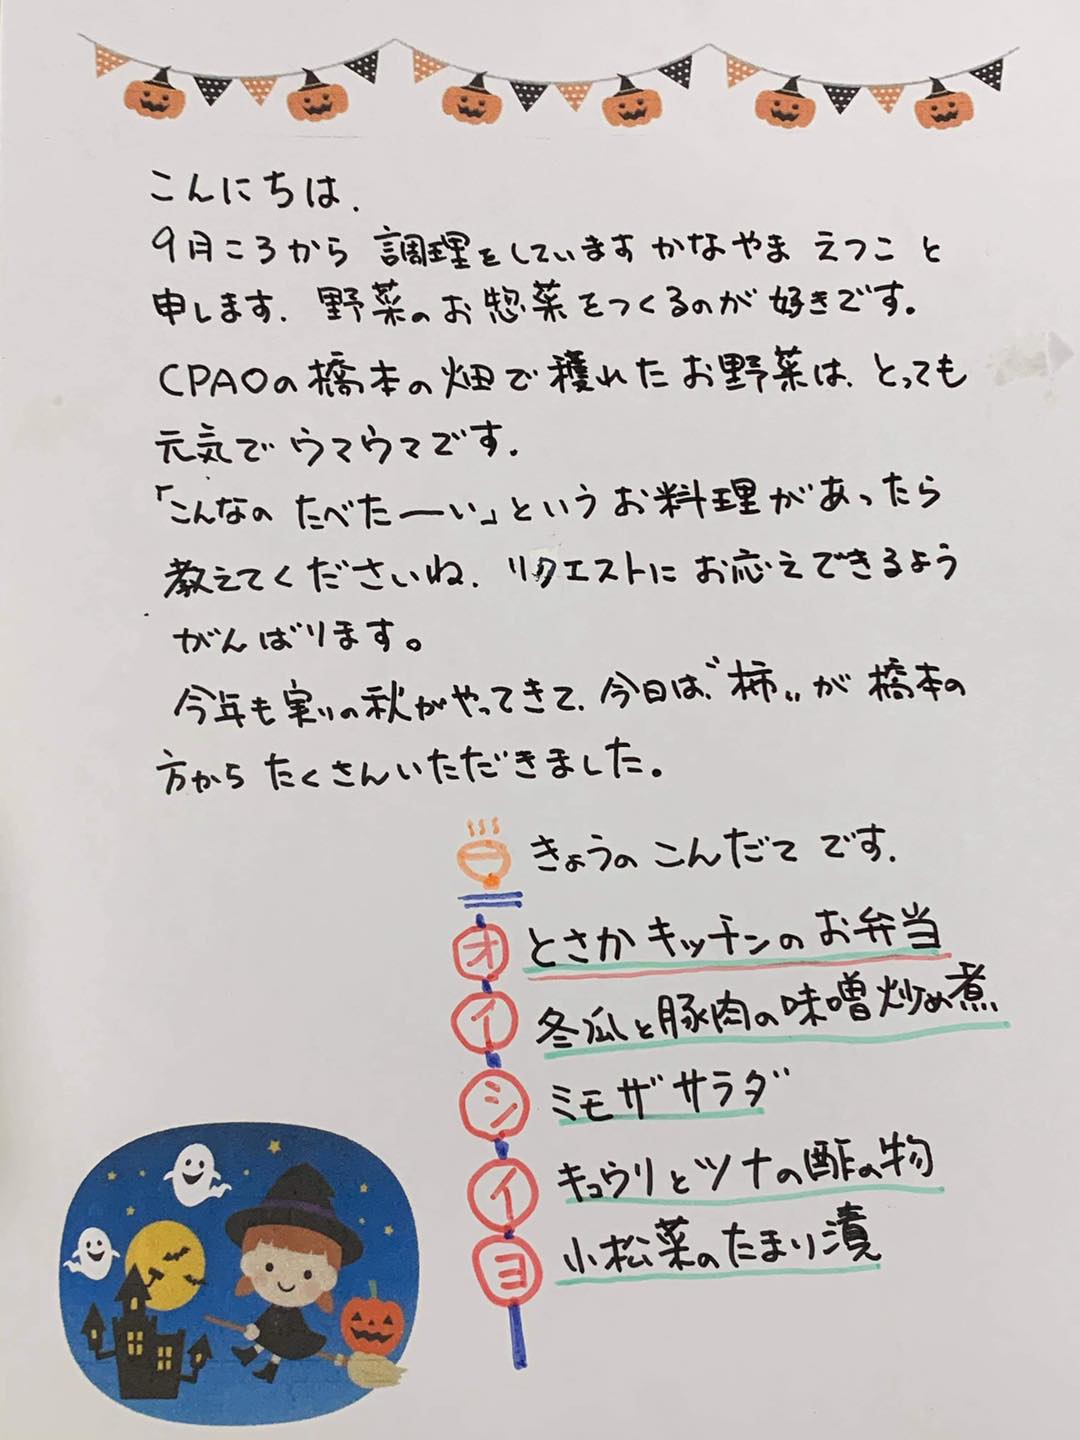 こんにちは.
9月ころから 調理をしています かなやま えつこ と
申します. 野菜のお惣菜をつくるのが 好きです。
CPAOの橋本の畑で穫れた お野菜は、とっても
元気で ウマウマです.
「こんなの たべたーい」という お料理があったら
教えてくださいね. リクエストに お応えできるよう
がんばります。
今年も実りの秋がやってきて、今日は、〝柿〟が 橋本の
方から たくさんいただきました。
きょうの こんだて です.
オイシイヨ
とさかキッチンのお弁当
冬瓜と豚肉の味噌炒め煮
ミモザサラダ
キュウリとツナの酢の物
小松菜のたまり漬